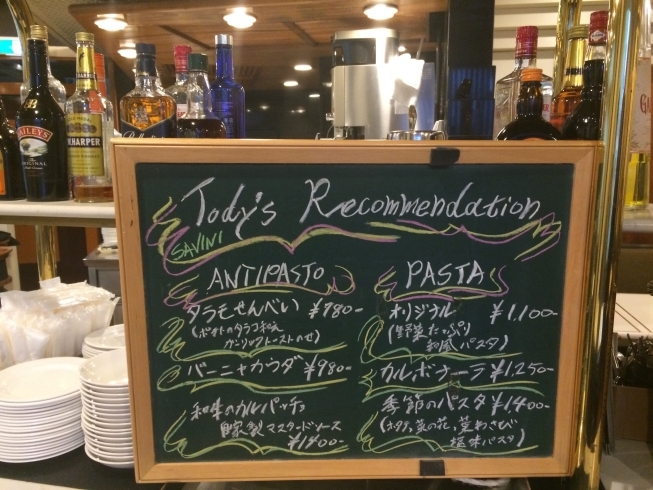 BAILEYS
ORIGINAL
I.W.HARPER
Today's Recommendation
SAVINI
ANTIPASTO
タラモせんべい ¥980-
(ポテトのタラコ和え
ガーリックトーストのせ)
バーニャカウダ ¥980-
和牛のカルパッチョ
自家製マスタードソース
¥1400-
PASTA
オリジナル ¥1.100-
(野菜たっぷり
和風パスタ)
カルボナーラ ¥1,250-
季節のパスタ ¥1400-
(ホタテ、菜の花、葉わさび
塩味パスタ)